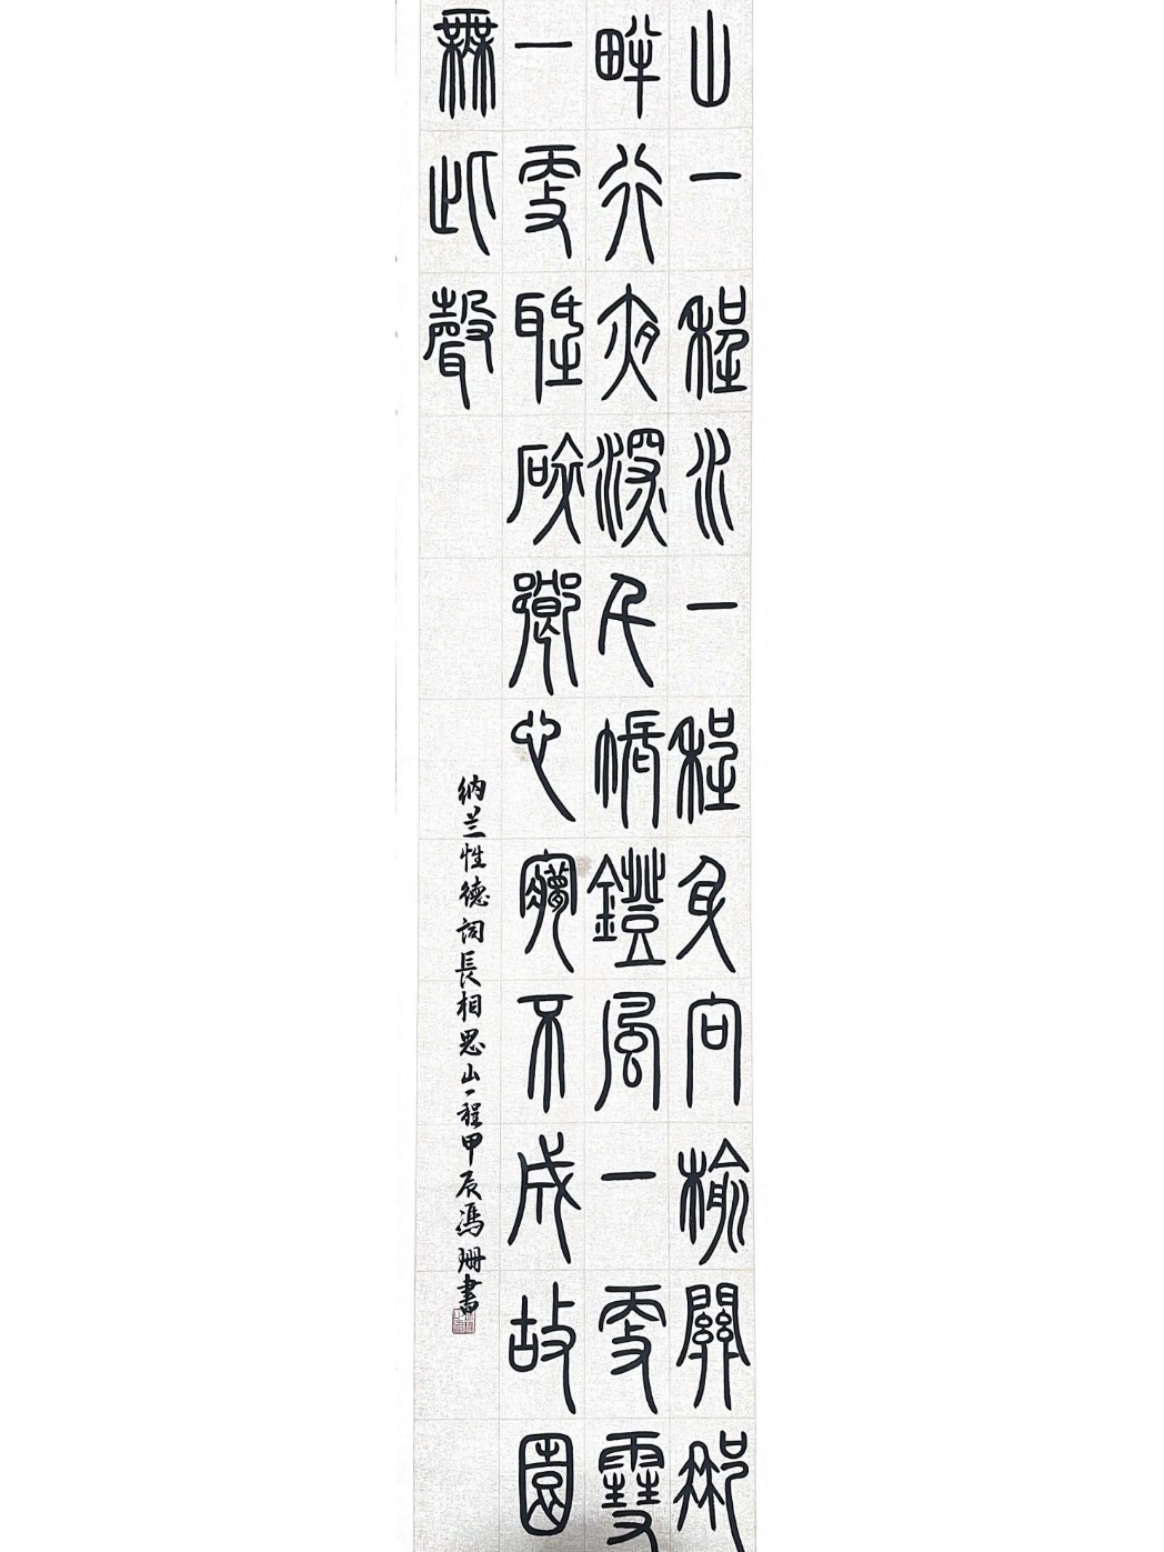 山一程水一程身向榆關那
畔行夜深千帳鐙風一更雪
一更聒碎鄉心夢不成故園
無此聲
纳兰性德词長相思山一程甲辰馮珊書